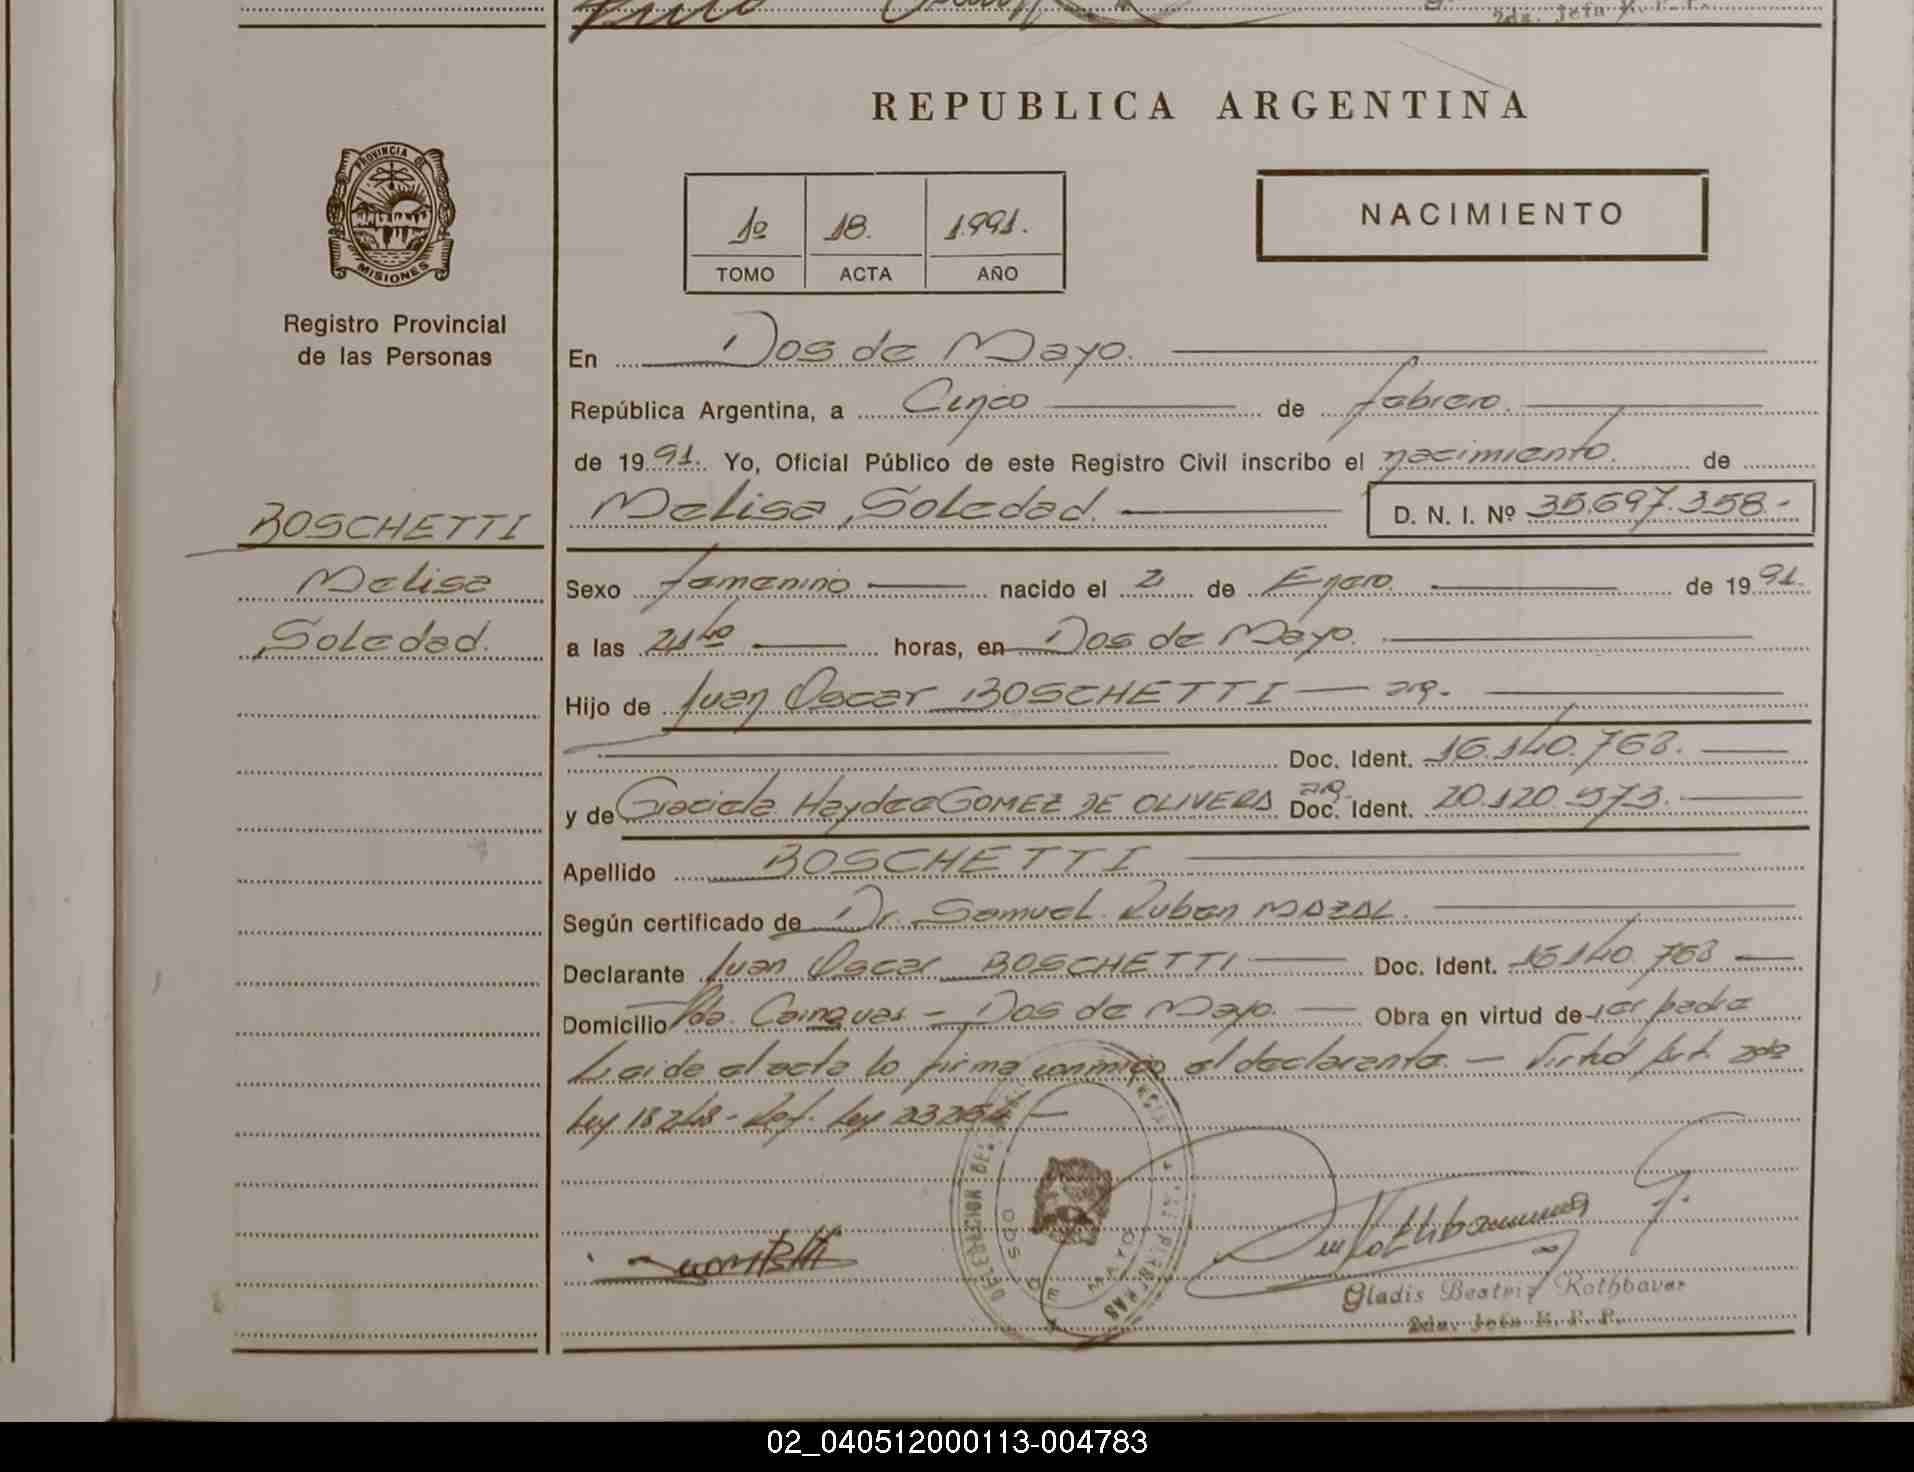 2da. Jefa R.P.P.
REPUBLICA ARGENTINA
PROVINCIA DE
MISIONES
Registro Provincial
de las Personas
1º 18. 1.991.
TOMO ACTA AÑO
NACIMIENTO
En Dos de Mayo.
República Argentina, a Cinco de febrero.
de 1991. Yo, Oficial Público de este Registro Civil inscribo el nacimiento. de
BOSCHETTI
Melisa Soledad. D. N. I. Nº 35.697.358.-
Melisa
Soledad.
Sexo femenino nacido el 2 de Enero. de 1991.
a las 21 40 horas, en Dos de Mayo.
Hijo de Juan Oscar BOSCHETTI — arg.
Doc. Ident. 16.140.763.
y de Graciela Haydee GOMEZ DE OLIVERA arg. Doc. Ident. 20.120.573.
Apellido BOSCHETTI
Según certificado de Dr. Samuel Ruben MAZAL.
Declarante Juan Oscar BOSCHETTI Doc. Ident. 16.140.763
Domicilio Pda. Cainguas - Dos de Mayo. Obra en virtud de ser padre
Leida el acta lo firma conmigo el declarante. - Virtud Art. 2do
Ley 18248 - Ref. Ley 23264 -
DELEGACION DEL
DOS DE MAYO
Gladis Beatriz Rothbauer
2da. Jefa R.P.P.
02_040512000113-004783